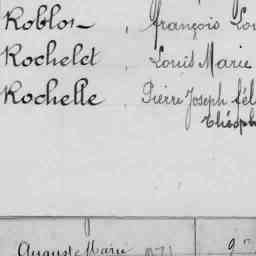 Roblot, François Lou
Rochelet, Louis Marie
Rochelle, Pierre Joseph fél
théoph
Auguste Marie